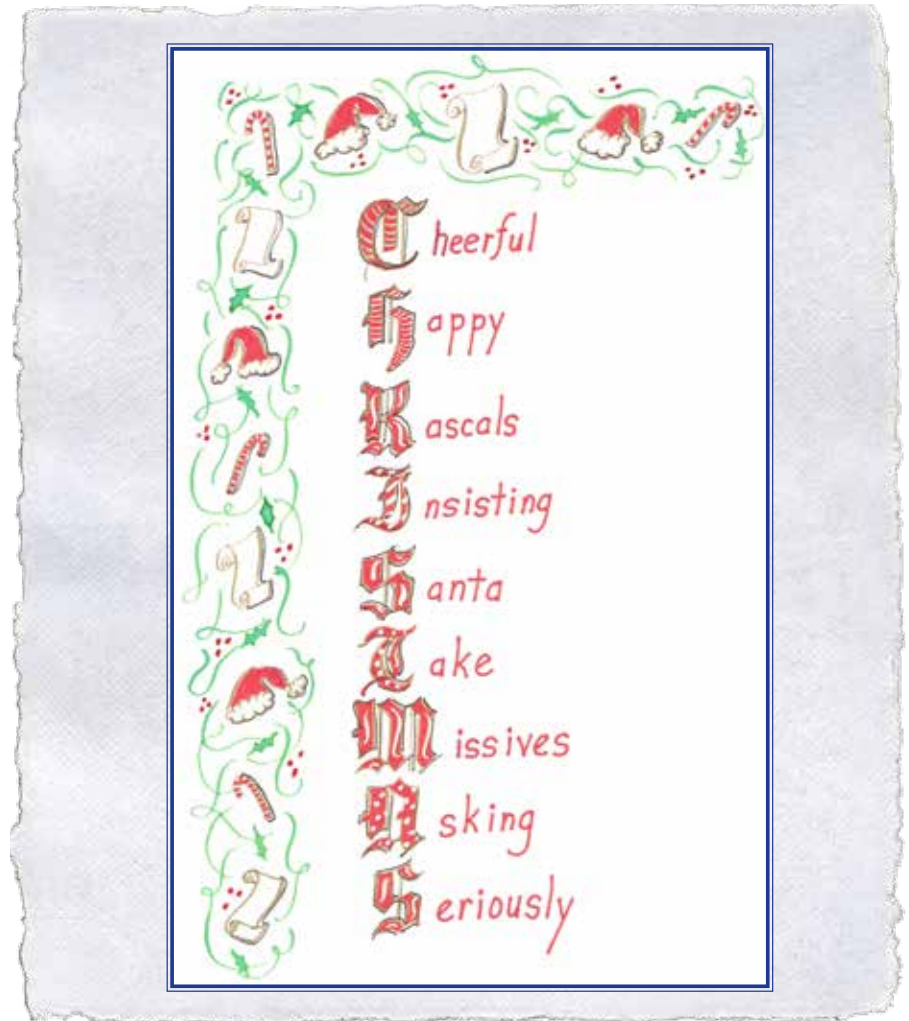 Cheerful
Happy
Rascals
Insisting
Santa
Take
Missives
Asking
Seriously